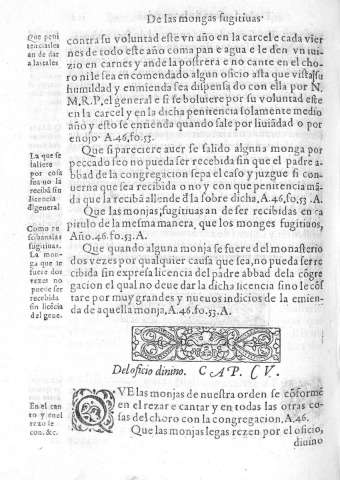 De las mongas fugitiuas·
Que peni
tencias les
an de dar
a las tales
contra su voluntad este vn año en la carcel e cada vier
nes de todo este año coma pan e agua e le den vn iui-
zio en carnes y ande la postrera e no cante en el cho-
ro ni le sea en comendado algun oficio asta que vista su
humildad y enmienda sea dispensado con ella por N.
M.R.P. el general e si se boluiere por su voluntad este
en la carcel y en la dicha penitencia solamente medio
año y esto se entienda quando sale por liuiādad o por
enojo· A.46.fo.53.A.
La que se
saliere
por cosa
fea no la
reciba sin
licencia
d'l general
Que si pareciere auer se salido alguna monga por
peccado feo no pueda ser recebida sin que el padre a-
bbad de la congregacion sepa el caso y juzgue si con
uerna que sea recibida o no y con que penitencia mā-
da que la recibā allende d'la sobre dicha, A.46.fo.53.A.
Como re
sciban a las
fugitiuas.
Que las monjas, fugitiuas an de ser recibidas en ca
pitulo de la mesma manera, que los monges fugitiuos,
Año.46.fo.53.A.
La mon-
ga que se
fuere dos
vezes no
puede ser
recebida
sin licēcia
del gene.
Que quando alguna monja se fuere del monasterio
dos vezes por qualquier causa que sea, no pueda ser re
cibida sin expresa licencia del padre abbad de la cōgre
gacion el qual no deue dar la dicha licencia sino le cōs
tare por muy grandes y nueuos indicios de la emien-
da de aquella monja, A.46.fo.53.A.
Del oficio diuino. CAP. CV.
En el can
to y en el
rezo se
con. &c.
QVE las monjas de nuestra orden se cōformē
en el rezar e cantar y en todas las otras co-
sas del choro con la congregacion. A.46.
Que las monjas legas rezen por el oficio,
diuino